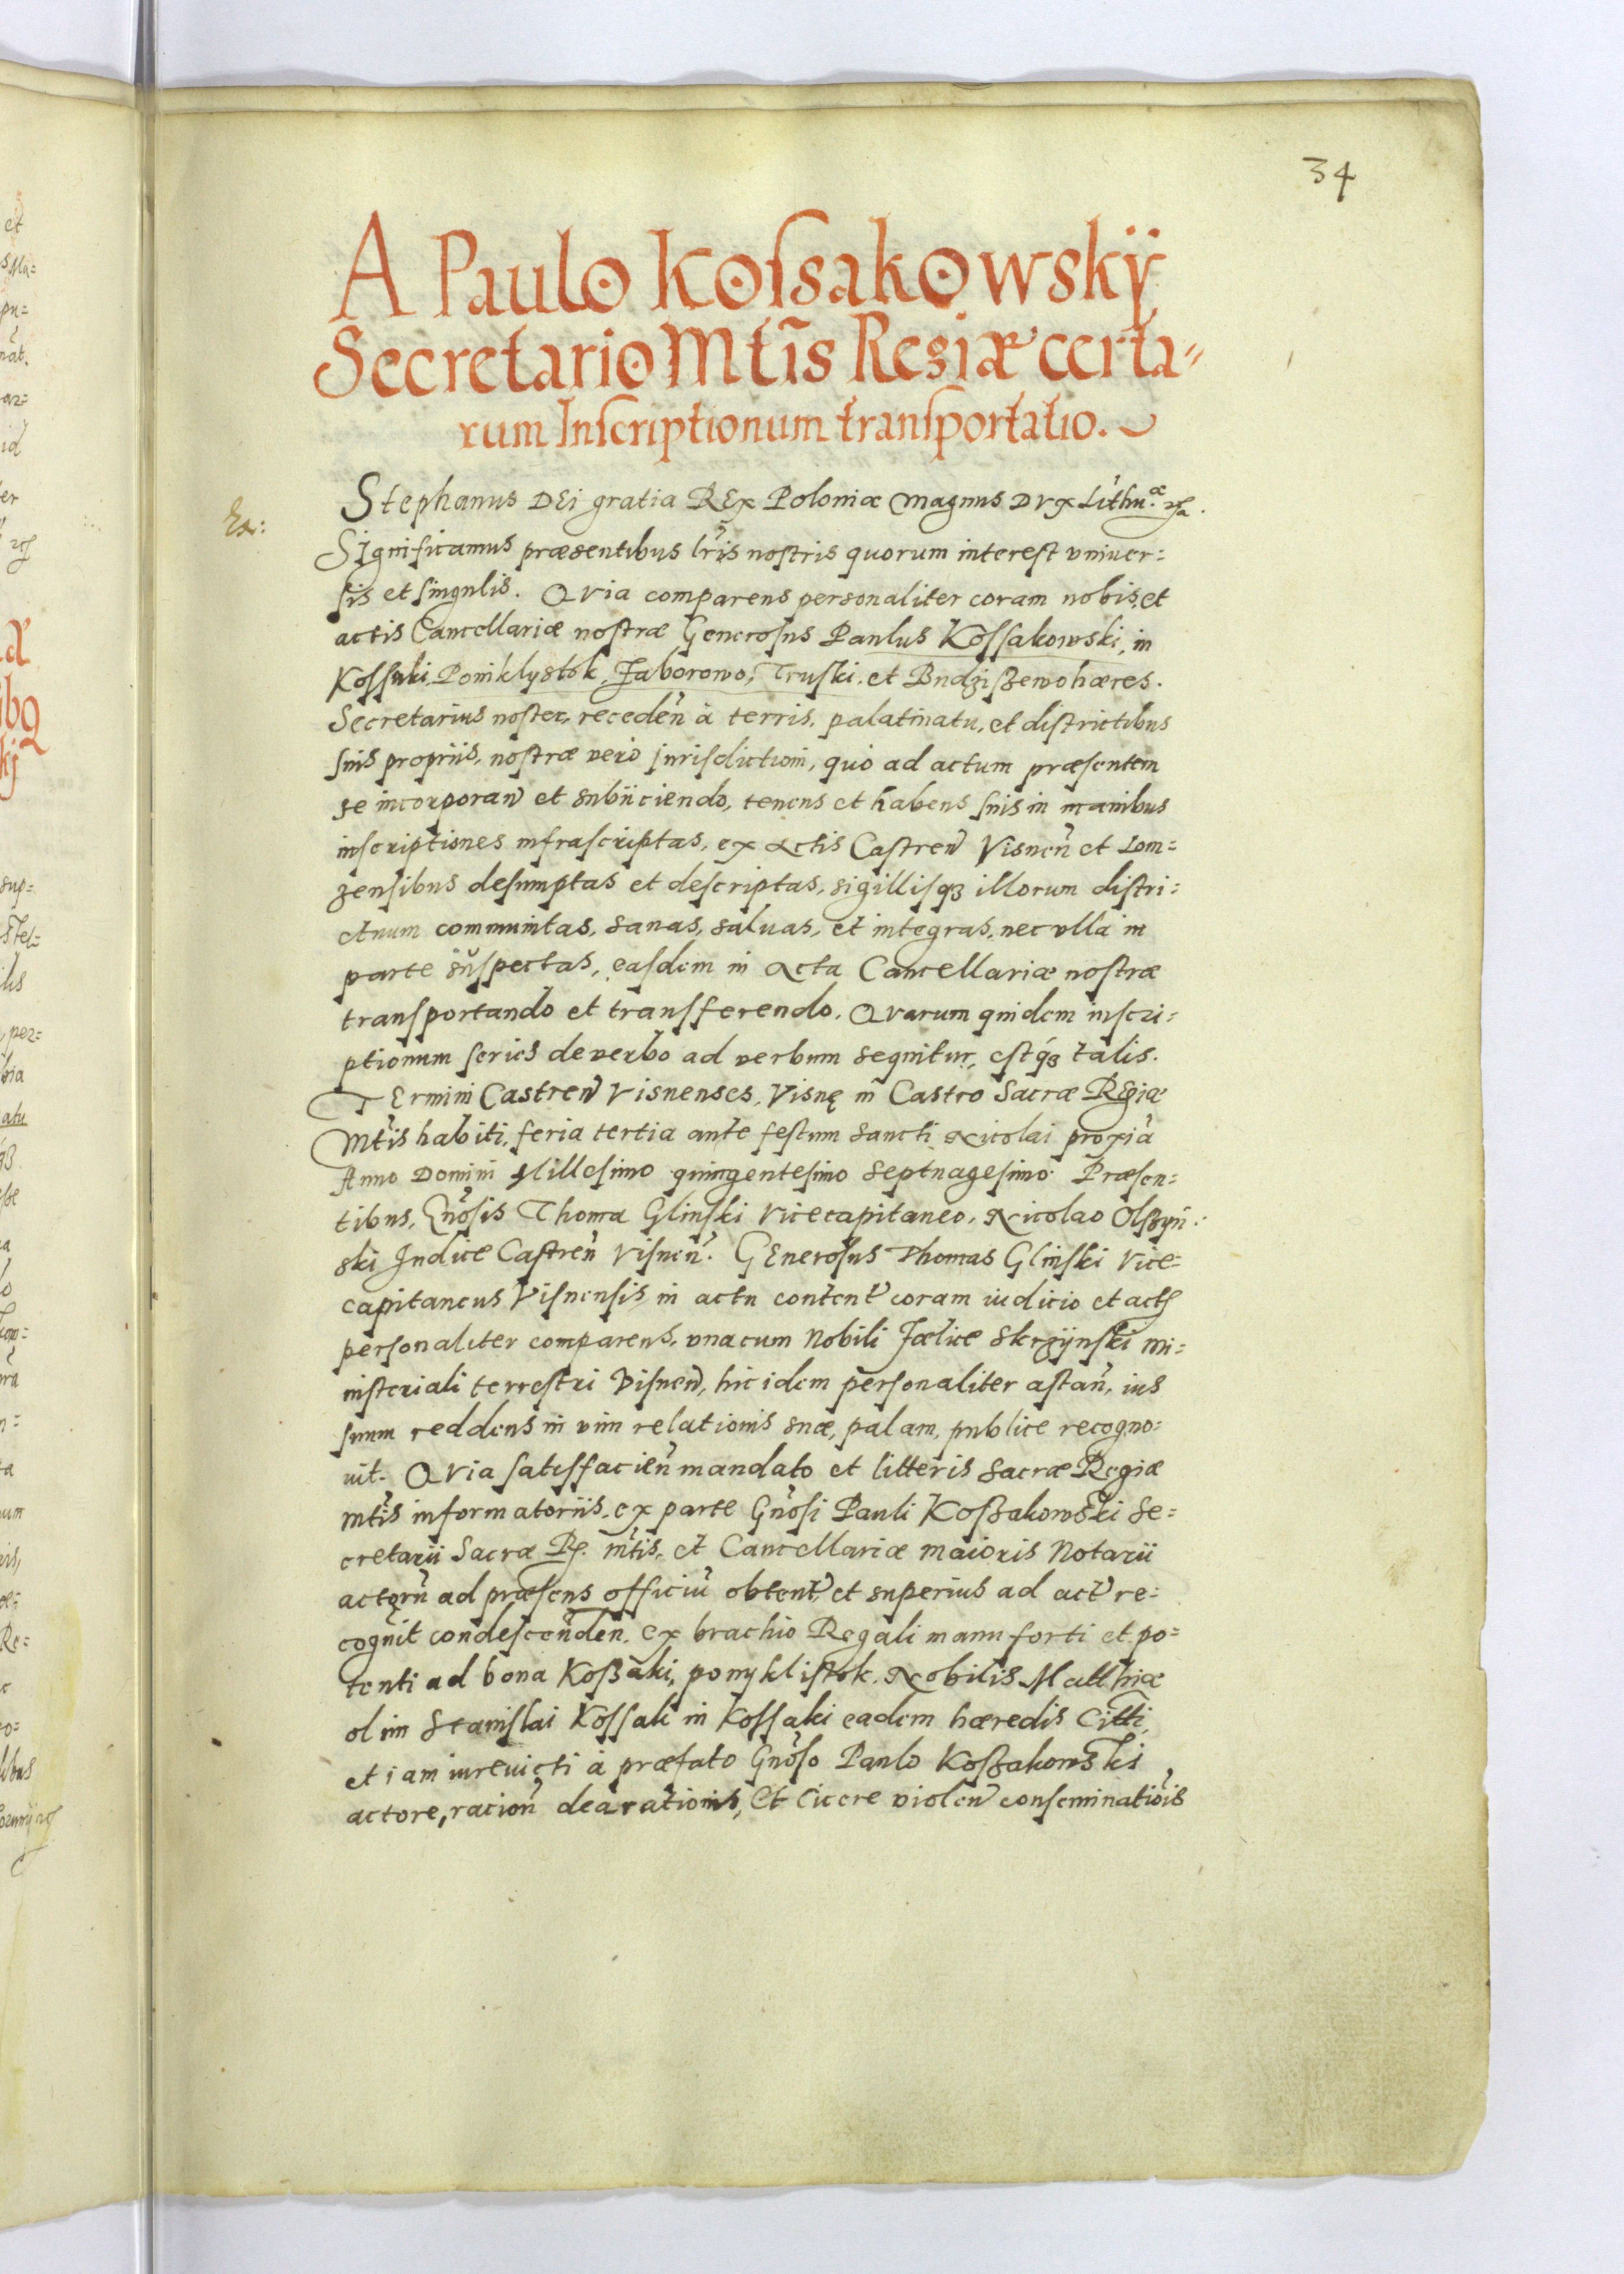 34
A Paulo Koſsakowskÿ
Secretario Mtĩs Regiæ certa=
rum Inſcriptionum tranſportatio.
Ex:
Stephanus DEi gratia REx Poloniæ Magnus DVx Lithu.æ
SIgnificamus præsentibus lr̃is nostris quorum interest vniuer=
ſis et ſingulis. QVia comparens personaliter coram nobis, et
actis Cancellariæ nostræ Generosus Paulus Koſſakowski, in
Koſſaki, Pomklystok, Jaborowo, Truſki, et Budziſzewo hæres.
Secretarius noster, recedeñ à terris, palatinatu, et diſtrictibus
ſuis propriis, nostræ verò Jurisdictioni, quò ad actum præsentem
se incorporañ et subiiciendo, tenens et habens ſuis in manibus
inſcriptiones infraſcriptas, ex Actis Caſtreñ Viſneñ et Lom=
zenſibus deſumptas et deſcriptas, sigilliſq3 illorum diſtri=
ctuum communitas, sanas, saluas, et integras, nec vlla in
parte suspectas, easdem in Acta Cancellariæ noſtræ
tranſportando et tranſferendo. QVarum quidem inſcri=
ptionum ſeries de verbo ad verbum sequitur, eſtq́3 talis.
TErmini Castreñ Visnenses, Visnę in Castro Sacræ REgiæ
Mt̃is habiti, feria tertia ante feſtum Sancti Nicolai proxiã
Anno Domini Millesimo quingentesimo Septuagesimo. Præsen=
tibus, Gñosis Thoma Glinſki Vicecapitaneo, Nicolao Olſzyń=
ski Judice Caſtreñ Viſneñ. GEneroſus Thomas Glinſki Vice=
capitaneus Viſnenſis, in actu content̃ coram iudicio et actꝭ
perſonaliter comparens, vna cum Nobili Fœlice Skrzÿnſki mi=
niſteriali terreſtri Viſneñ, hic idem perſonaliter aſtañ, ius
ſuum reddens in vim relationis suæ, palam, publice recogno=
uit. QVia ſatiſfacieñ mandato et litteris Sacræ Regiæ
Mt̃is informatoriis, ex parte Gñoſi Pauli Koſzakowſki Se=
cretarii Sacræ R. Mt̃is, et Cancellariæ maioris Notarii
actorũ ad præſens officiũ obtent̃, et superius ad act̃ re=
cognit condeſcendeñ, ex brachio Regali manu forti et po=
tenti ad bona Koſzaki, ponykliſtok, Nobilis Matthiæ
olim Staniſlai Koſſak in Koſſaki eadem hæredis Citti,
et iam iureuicti à præfato Gñoſo Paulo Koſzakowſki
actore, racioñ dearationis, et cicere violeñ conseminatiõis